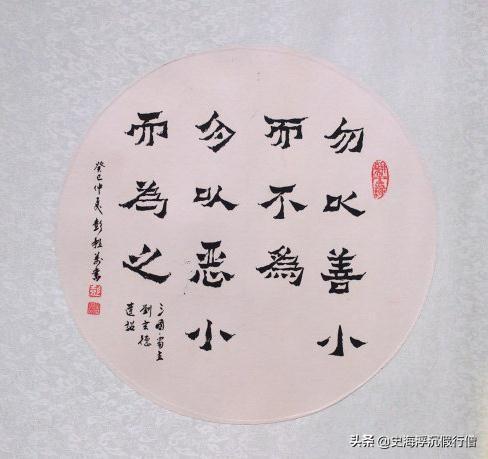 勿以善小
而不為
勿以恶小
而為之
三國·蜀主
劉玄德
遺詔
癸巳仲夏彭程万書
头条 @史海浮沉假行僧